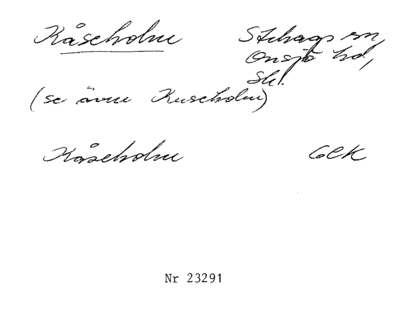 Kåseholm Stehags sn,
Onsjö hd,
Sk.
(se även Kuseholm)
Kåseholm GEK
Nr 23291